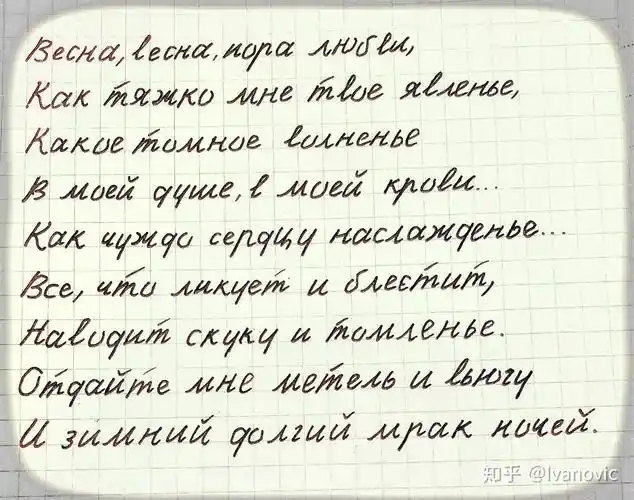 Весна, весна, пора любви,
Как тяжко мне твое явленье,
Какое томное волненье
В моей душе, в моей крови...
Как чуждо сердцу наслажденье...
Все, что ликует и блестит,
Наводит скуку и томленье.
Отдайте мне метель и вьюгу
И зимний долгий мрак ночей.
知乎 @Ivanovic